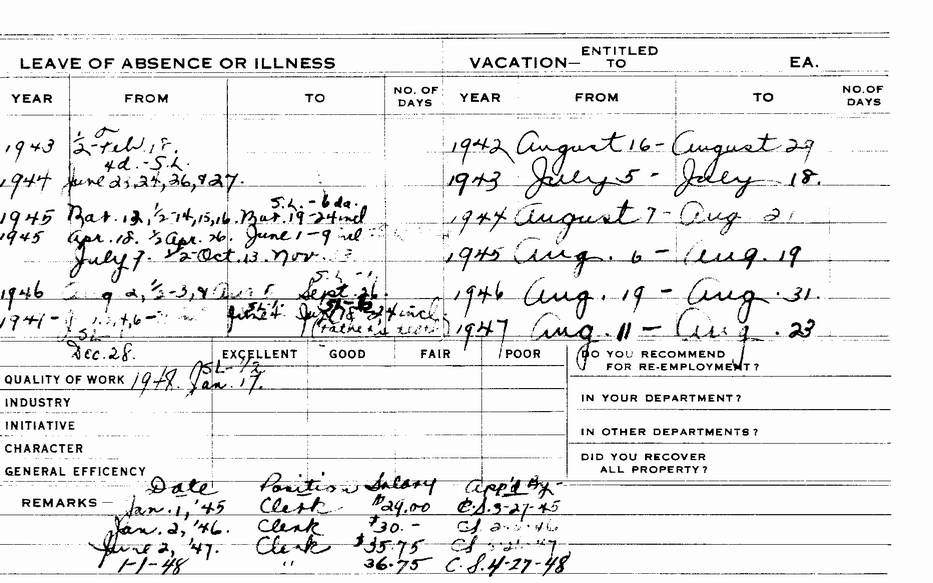 LEAVE OF ABSENCE OR ILLNESS VACATION— ENTITLED TO EA.
YEAR FROM TO NO. OF DAYS YEAR FROM TO NO. OF DAYS
1943 ½-Feb. 18. 1942 August 16 - August 29
4d. - S.L.
1944 June 23, 24, 26, & 27. 1943 July 5 - July 18.
S.L. - 6 da.
1945 Mar. 12, ½-14, 15, 16. Mar. 19-24 incl 1944 August 7 - Aug 2
1945 Apr. 18. ½ Apr. 26. June 1-9 1945 Aug. 6 - Aug. 19
July 7. ½-Oct. 13. Nov.
1946 2, ½-3, & Sept. 26. 1946 Aug. 19 - Aug. 31.
1947 Aug. 11 - Aug. 23
Dec. 28. EXCELLENT GOOD FAIR POOR DO YOU RECOMMEND FOR RE-EMPLOYMENT?
SL-½
QUALITY OF WORK 1948. Jan. 17.
INDUSTRY IN YOUR DEPARTMENT?
INITIATIVE
CHARACTER IN OTHER DEPARTMENTS?
GENERAL EFFICENCY DID YOU RECOVER ALL PROPERTY?
REMARKS — Date Position Salary App'd By-
Jan. 1, '45 Clerk $29.00 C.S. 3-27-45
Jan. 2, '46. Clerk $30.- CS
June 2, '47. Clerk $35.75 CS
1-1-48 " 36.75 C.S. 4-27-48